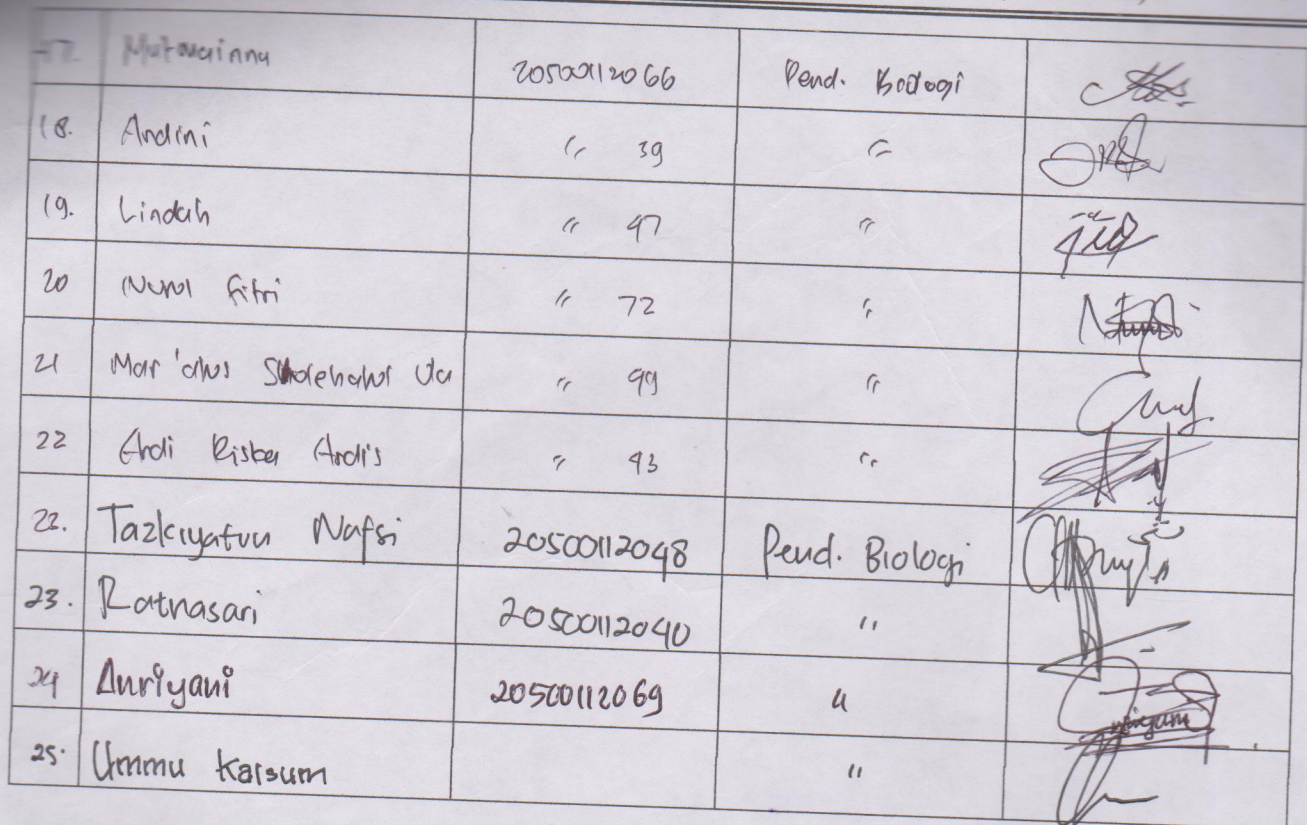 17. Mutmainna 20500112066 Pend. Biologi
18. Andini " 39 "
19. Lindah " 47 "
20 Nurul Fitri " 72 "
21 Mar'atus Sholehatul Ula " 99 "
22 Ardi Riska Ardis " 43 "
22. Tazkiyatun Nafsi 20500112048 Pend. Biologi
23. Ratnasari 20500112040 "
24 Anriyani 20500112069 "
25. Ummu Kalsum "